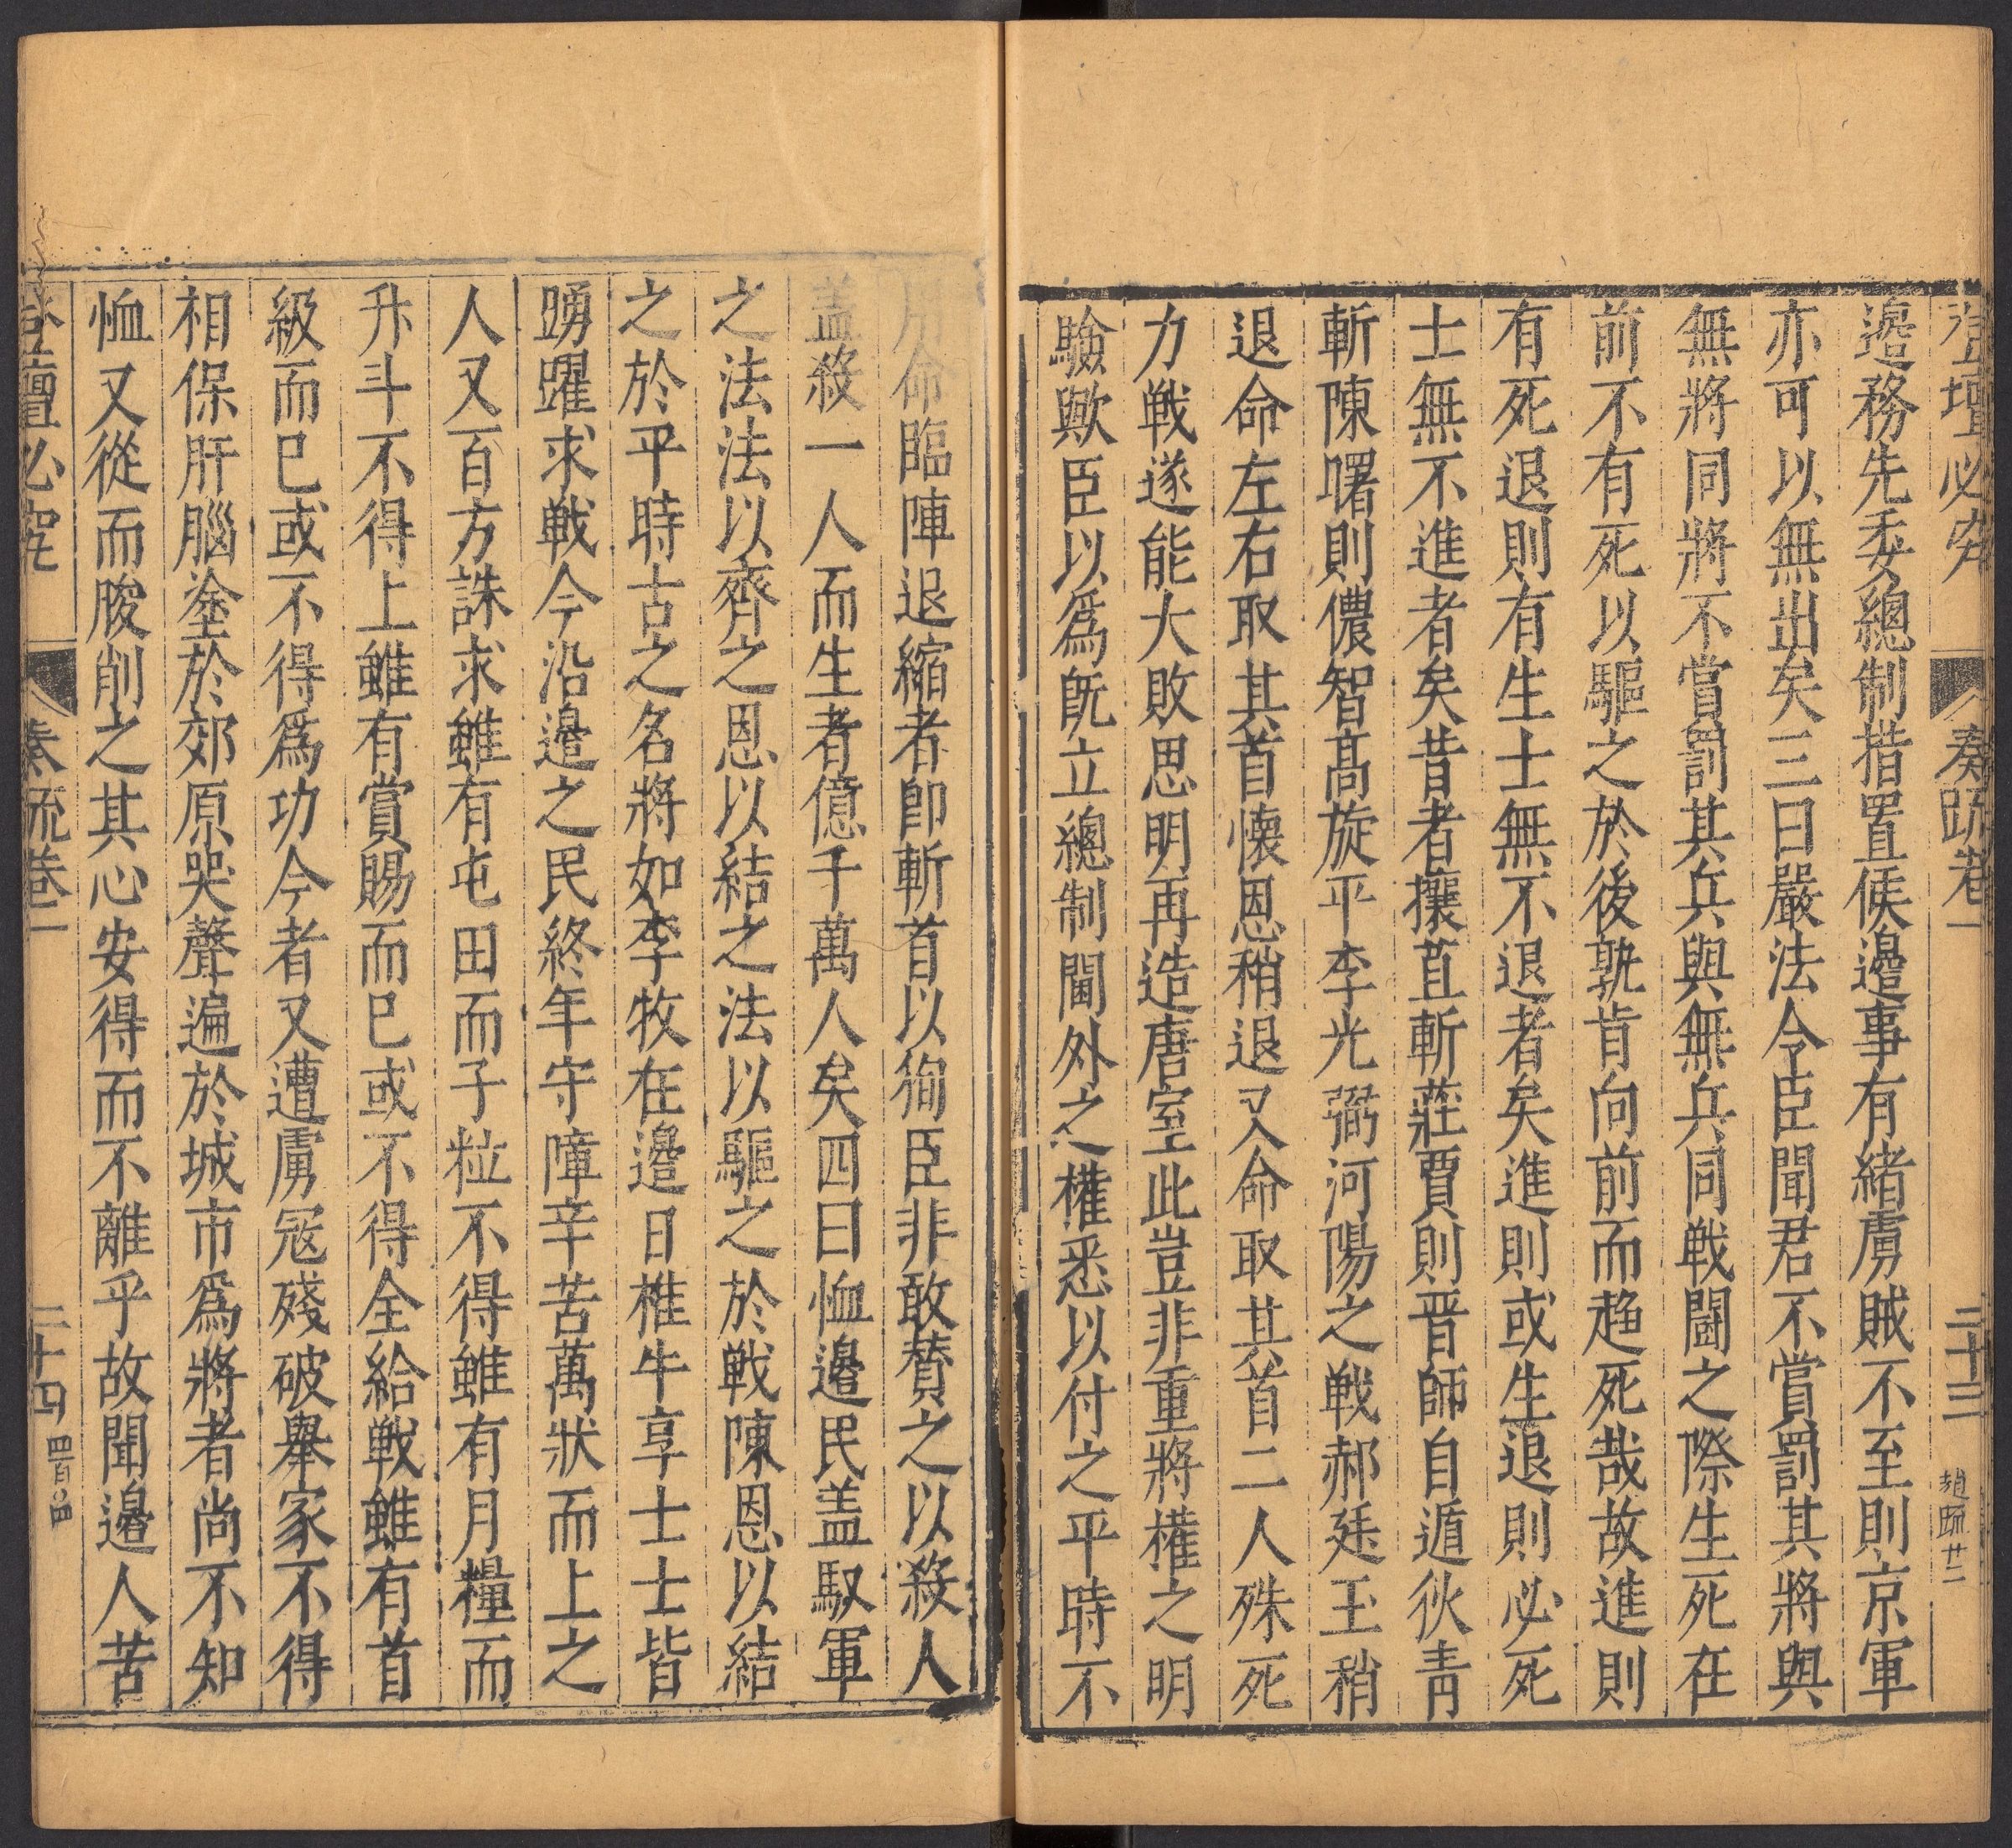 登壇必究 奏疏卷一 二十三 趙疏廿二
邊務先委總制措置候邊事有緒虜賊不至則京軍
亦可以無出矣三曰嚴法令臣聞君不賞罰其將與
無將同將不賞罰其兵與無兵同戦鬪之際生死在
前不有死以驅之於後孰肯向前而趋死哉故進則
有死退則有生士無不退者矣進則或生退則必死
士無不進者矣昔者攘苴斬莊賈則晋師自遁狄青
斬陳曙則儂智髙旋平李光弼河陽之戦郝廷玉稍
退命左右取其首懐恩稍退又命取其首二人殊死
力戦遂能大敗思明再造唐室此豈非重將權之明
驗歟臣以爲旣立總制閫外之權悉以付之平時不
用命臨陣退縮者卽斬首以徇臣非敢賛之以殺人
盖殺一人而生者億千萬人矣四曰恤邊民盖馭軍
之法法以齊之恩以結之法以驅之於戦陳恩以結
之於平時古之名將如李牧在邊日椎牛享士士皆
踴躍求戦今沿邊之民終年守障辛苦萬狀而上之
人又百方誅求雖有屯田而子粒不得雖有月糧而
升斗不得上雖有賞賜而巳或不得全給戦雖有首
級而巳或不得爲功今者又遭虜冦殘破舉家不得
相保肝腦塗於郊原哭聲遍於城市爲將者尚不知
恤又從而朘削之其心安得而不離乎故聞邊人苦
登壇必究 奏疏卷一 二十四